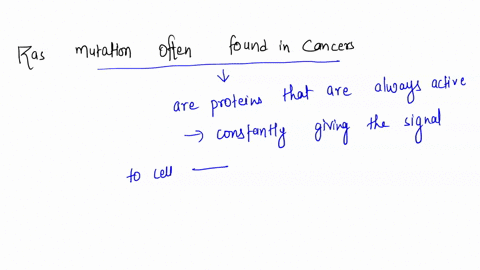 Ras mutation often found in Cancers
↓
are proteins that are always active
→ constantly giving the signal
to cell —